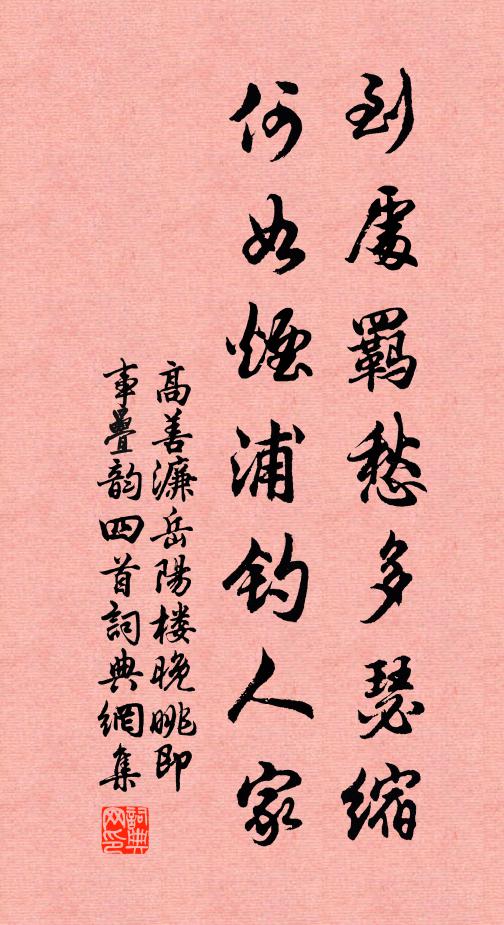 到處羈愁多瑟縮
何如煙浦釣人家
高善濂岳陽楼晚眺即
事疊韵四首詞典網集
詞典
网印